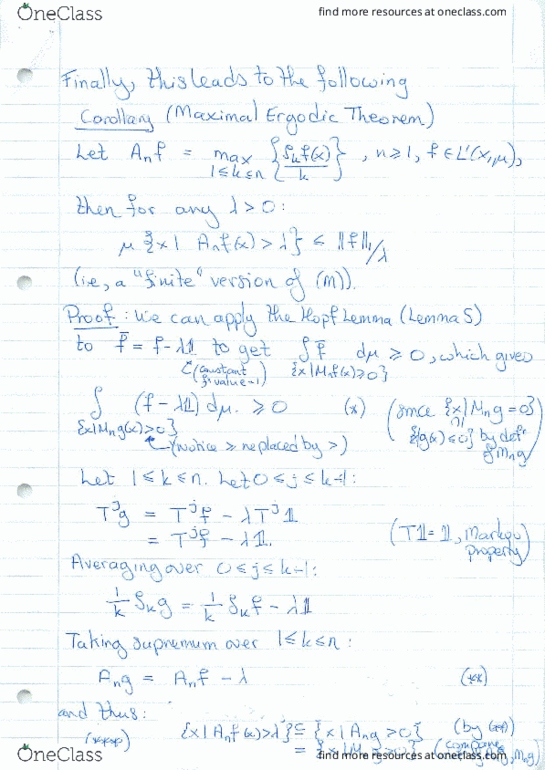 OneClass
find more resources at oneclass.com
Finally, this leads to the following
Corollary (Maximal Ergodic Theorem)
Let Anf = max {Skf(x)/k}, n≥1, f∈L'(X,μ),
1≤k≤n
then for any λ>0:
μ{x| Anf(x)>λ} ≤ ‖f‖₁/λ
(ie, a "finite" version of (m)).
Proof: We can apply the Hopf Lemma (Lemma 5)
to f̄ = f-λ𝟙 to get ∫ f̄ dμ ≥ 0, which gives
(constant fn value=1) {x|Mnf(x)≥0}
∫ (f-λ𝟙) dμ ≥ 0 (*) (since {x|Mng=0}
{x|Mng(x)>0} ∩| {g(x)≤0} by def
(notice ≥ replaced by >) of Mng)
Let 1≤k≤n. Let 0≤j≤k-1:
Tʲg = Tʲf - λTʲ𝟙
= Tʲf - λ𝟙. (T𝟙=𝟙, Markov property)
Averaging over 0≤j≤k-1:
1/k Skg = 1/k Skf - λ𝟙
Taking supremum over 1≤k≤n:
Ang = Anf - λ (**)
and thus:
{x|Anf(x)>λ} ⊆ {x|Ang>0} (by (**))
(***) = {x|M
OneClass
find more resources at oneclass.com